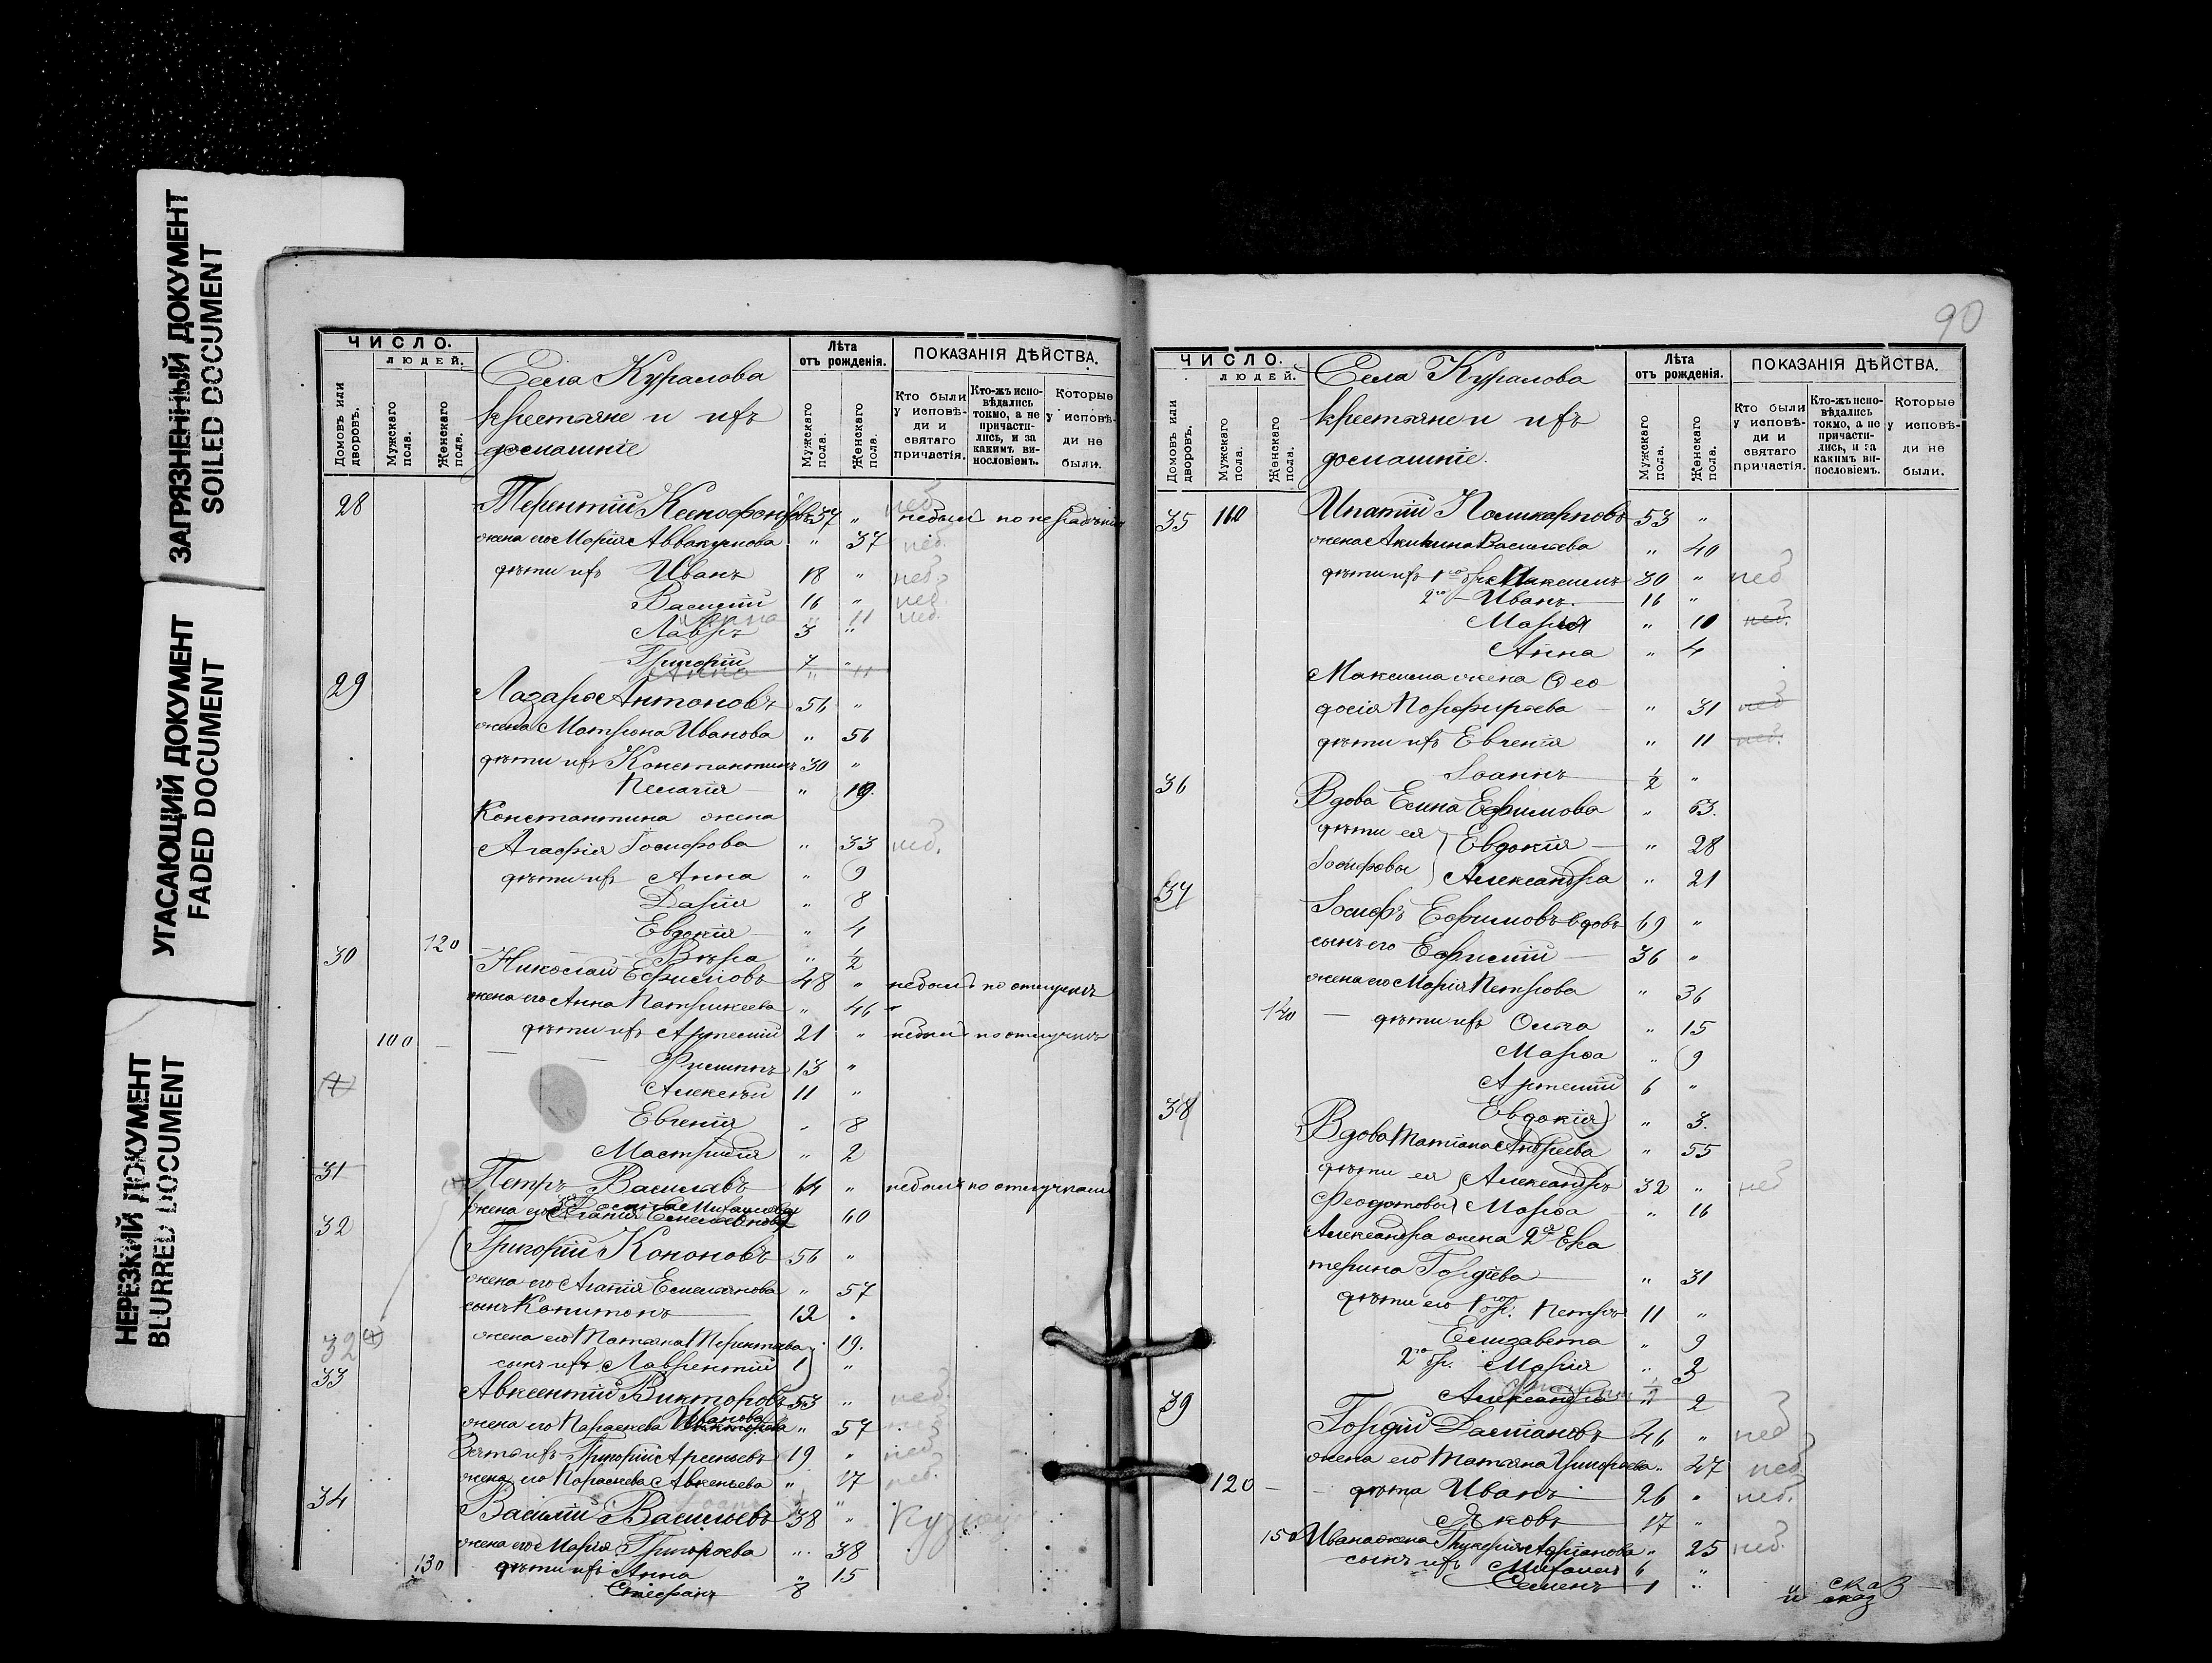 ЗАГРЯЗНЕННЫЙ ДОКУМЕНТ
SOILED DOCUMENT
УГАСАЮЩИЙ ДОКУМЕНТ
FADED DOCUMENT
НЕРЕЗКИЙ ДОКУМЕНТ
BLURRED DOCUMENT
ЧИСЛО.
ЛЮДЕЙ.
Домовъ или дворовъ.
Мужскаго пола.
Женскаго пола.
Села Куралова
крестьяне и ихъ
домашніе
Лѣта
отъ рожденія.
Мужскаго пола.
Женскаго пола.
ПОКАЗАНІЯ ДѢЙСТВА.
Кто были у исповѣди и святаго причастія.
Кто-жъ исповѣдались токмо, а не причастились, и за какимъ винословіемъ.
Которые у исповѣди не были.
28 Терентій Ксенофонтовъ 37 "
жена его Марія Аввакумова " 37 неб.
дѣти ихъ Иванъ 18 " неб
Василій 16 " неб.
Анна " 11 неб.
Лавръ 3 "
Григорій 7 "
Анна " 11
29 Лазарь Антоновъ 56 "
жена Матрона Иванова " 56
дѣти ихъ Константинъ 30 "
Пелагія " 19.
Константина жена
Агафія Іосифова " 33 неб.
дѣти ихъ Анна " 9
Дарія " 8
Евдокія " 4
120 Вѣра " ½
30 Николай Ефимовъ 48 " небылъ по отлучкѣ
жена его Анна Патрикеева " 46
100 дѣти ихъ Артемій 21 " небылъ по отлучкѣ
Филиппъ 13 "
Алексѣй 11 "
Евгенія " 8
Мастридія " 2
31 Петръ Васильевъ 64 " небылъ по отлучкам
жена его Михаилова 60
Агапія Емельянова
32 Григорій Кононовъ 56 "
жена его Агапія Емельянова " 57
сынъ Капитонъ 12
32 жена его Татьяна Терентьева 19.
сынъ ихъ Лаврентій 1 "
33 Авксентій Викторовъ 53 " неб.
жена его Параскева Иванова " 57 неб
Зять ихъ Григорій Арсеньевъ 19 " неб
жена его Параскева Авксеньева " 17 неб.
34 Василій Васильевъ 38 "
жена его Марія Григорьева " 38
130 дѣти ихъ Анна " 15
Стефанъ 8
90
ЧИСЛО.
ЛЮДЕЙ.
Домовъ или дворовъ.
Мужскаго пола.
Женскаго пола.
Села Куралова
крестьяне и ихъ
домашніе.
Лѣта
отъ рожденія.
Мужскаго пола.
Женскаго пола.
ПОКАЗАНІЯ ДѢЙСТВА.
Кто были у исповѣди и святаго причастія.
Кто-жъ исповѣдались токмо, а не причастились, и за какимъ винословіемъ.
Которые у исповѣди не были.
35 110 Ипатій Поликарповъ 53 "
жена Акилина Васильева " 40
дѣти ихъ 1го бр. Максимъ 30 " неб
2го Иванъ 16 "
Марія " 10 неб.
Анна " 4
Максима жена Ѳео
досія Порфирьева " 31 неб
дѣти ихъ Евгенія " 11 неб.
Іоаннъ ½ "
36 Вдова Елена Ефимова " 63.
дѣти ея Евдокія " 28
Іосифовы Александра " 21
37 Іосифъ Ефимовъ вдовъ 69 "
сынъ его Ефимій 36 "
жена его Марія Петрова " 36
140 дѣти ихъ Ольга " 15
Марѳа " 9
Артемій 6 "
Евдокія " 3.
38 Вдова Татіана Андреева " 55
дѣти ея Александръ 32 " неб
Феодотовы Марѳа " 16
Александра жена 2я Ека
терина Гордіева " 31
дѣти его 1го бр. Петръ 11 "
Елизавета " 9
2го бр. Марія " 3
Александра " 2
39 Гордій 46 " неб
жена его Татьяна Григорьева " 47 неб
120 дѣти Иванъ 26 " неб.
Яковъ 17 "
150 Ивана жена Гликерія " 25 неб.
сынъ ихъ Михаилъ 6 "
Семенъ 1 "